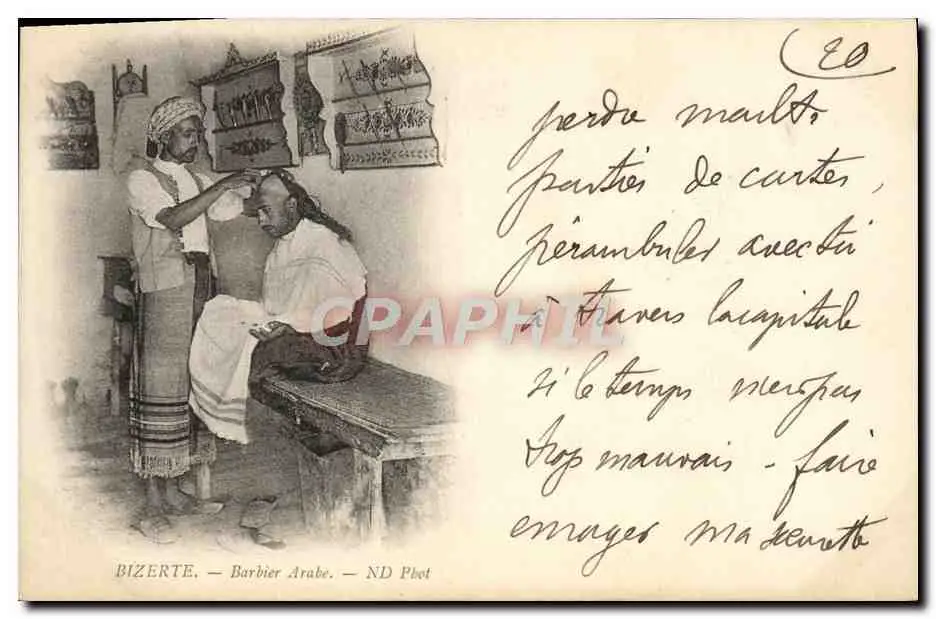 20
perdre mailts
parties de cartes,
pérambuler avec toi
à travers la capitale
si le temps n'est pas
trop mauvais - faire
enrager ma soeurette
CPAPHIL
BIZERTE. — Barbier Arabe. — ND Phot